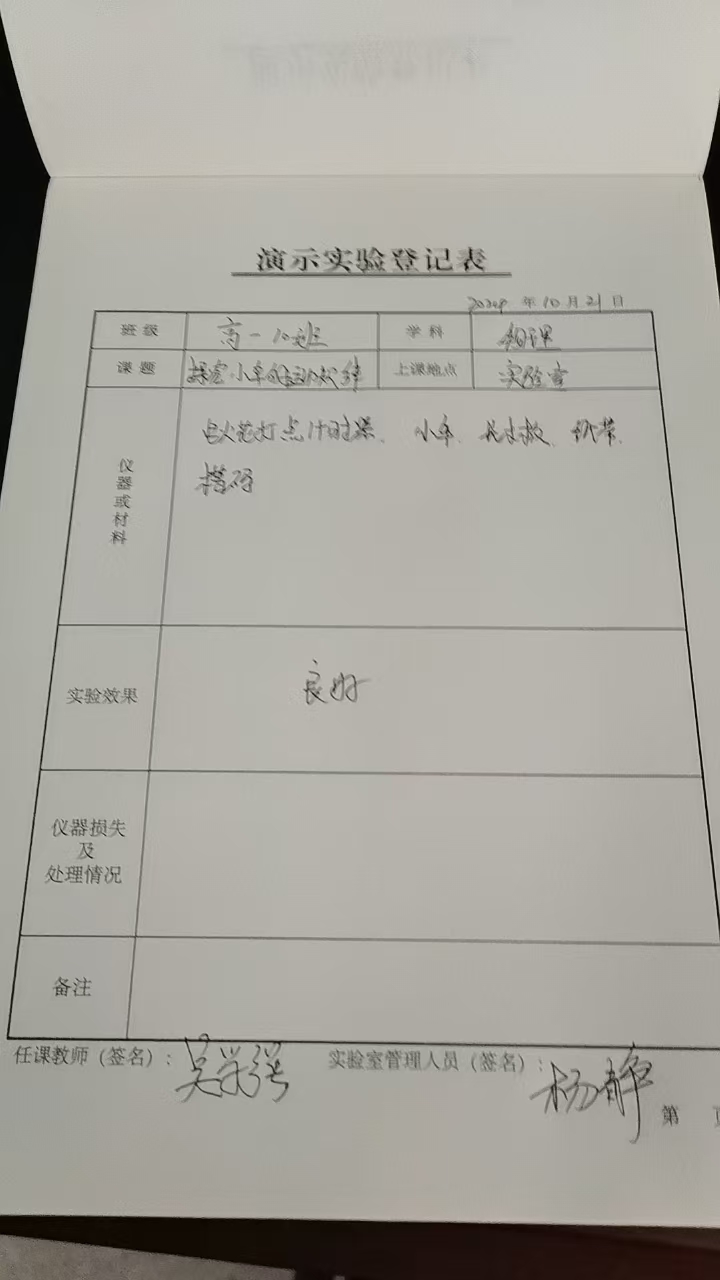 演示实验登记表
年10月21日
班级 高一10班 学科 物理
课题 探究小车的运动规律 上课地点 实验室
仪器或材料
电火花打点计时器、小车、长木板、纸带、
实验效果 良好
仪器损失
及
处理情况
备注
任课教师（签名）： 实验室管理人员（签名）：杨静
第